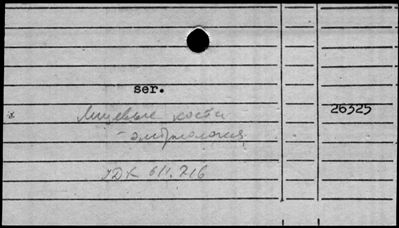 ser.
Лицевые кости 26325
- эмбриология
УДК 611.716